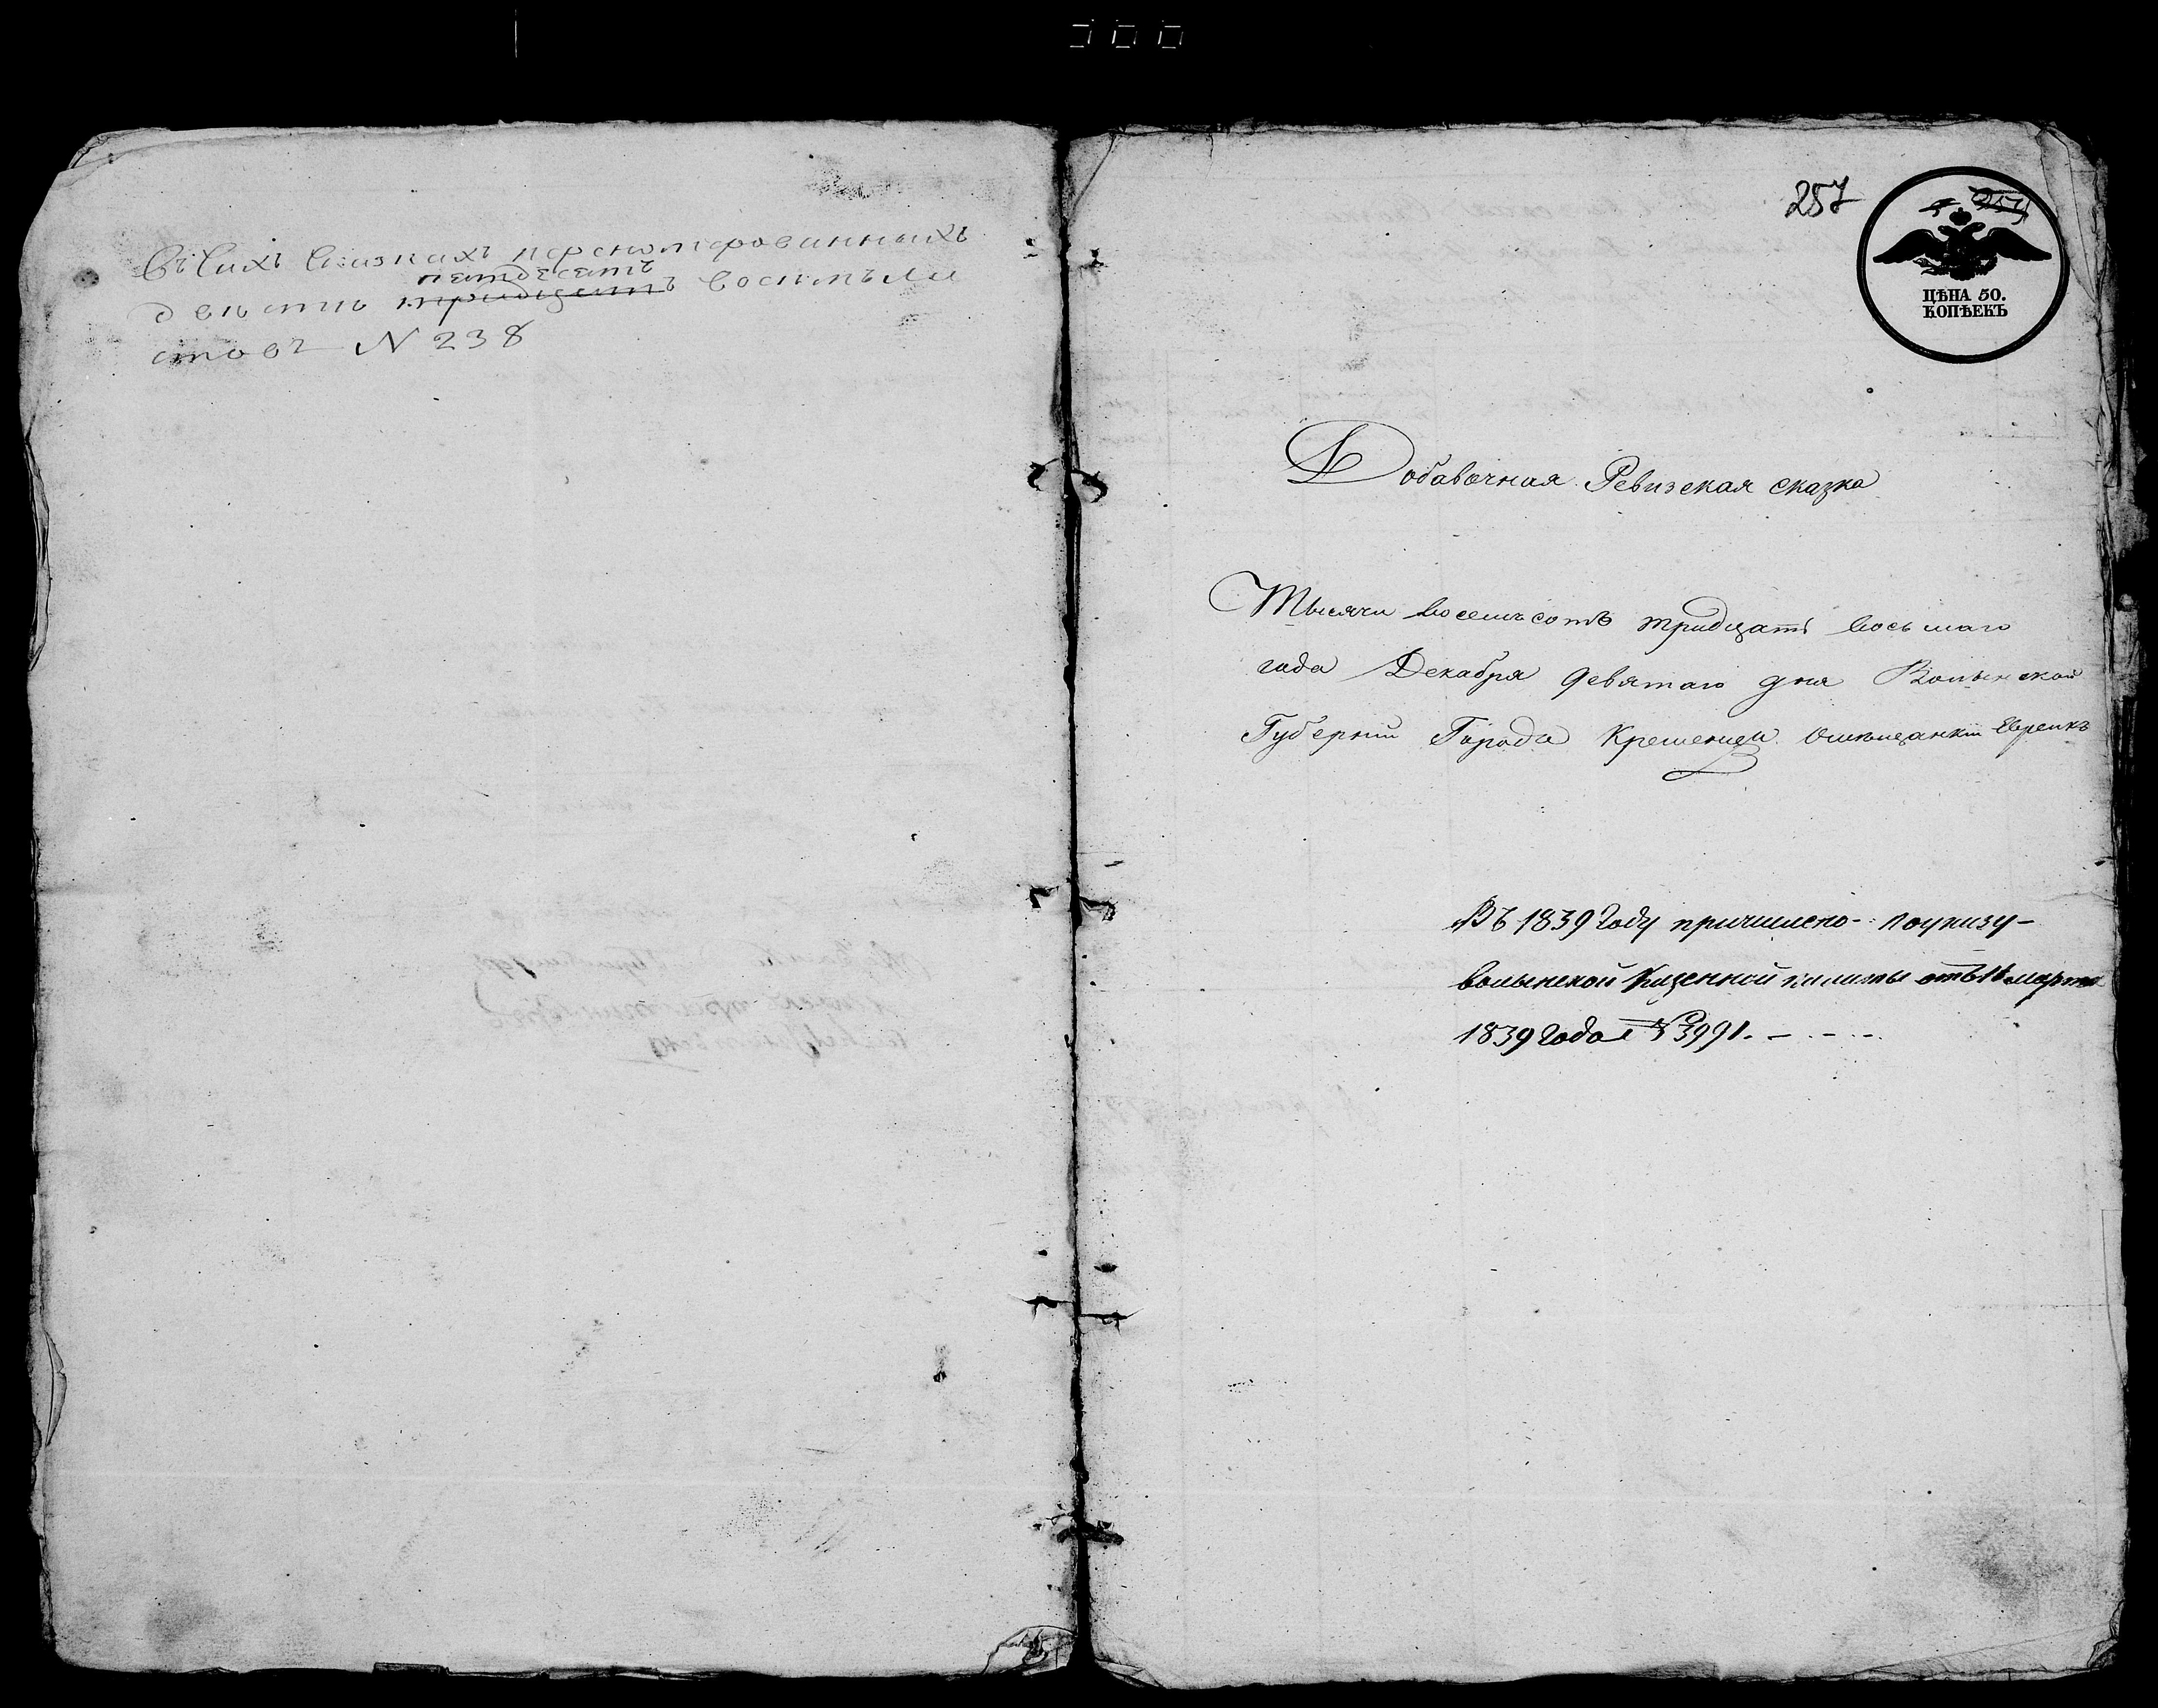 Въ сихъ сказкахъ перенумерованныхъ
пятдесятъ
двести тридцать восимь ли
стовъ N 238
257
254
ЦѢНА 50.
КОПѢЕКЪ
Добавочная Ревизская сказка
Тысяча восемьсотъ тридцать восьмаго
года Декабря девятаго дня Волынской
Губерніи Города Кременца Омѣщанкіи Евреихъ
Въ 1839 Году причислено - поуказу -
волынской Казенной палаты отъ 16 марта
1839 Года № 3991.